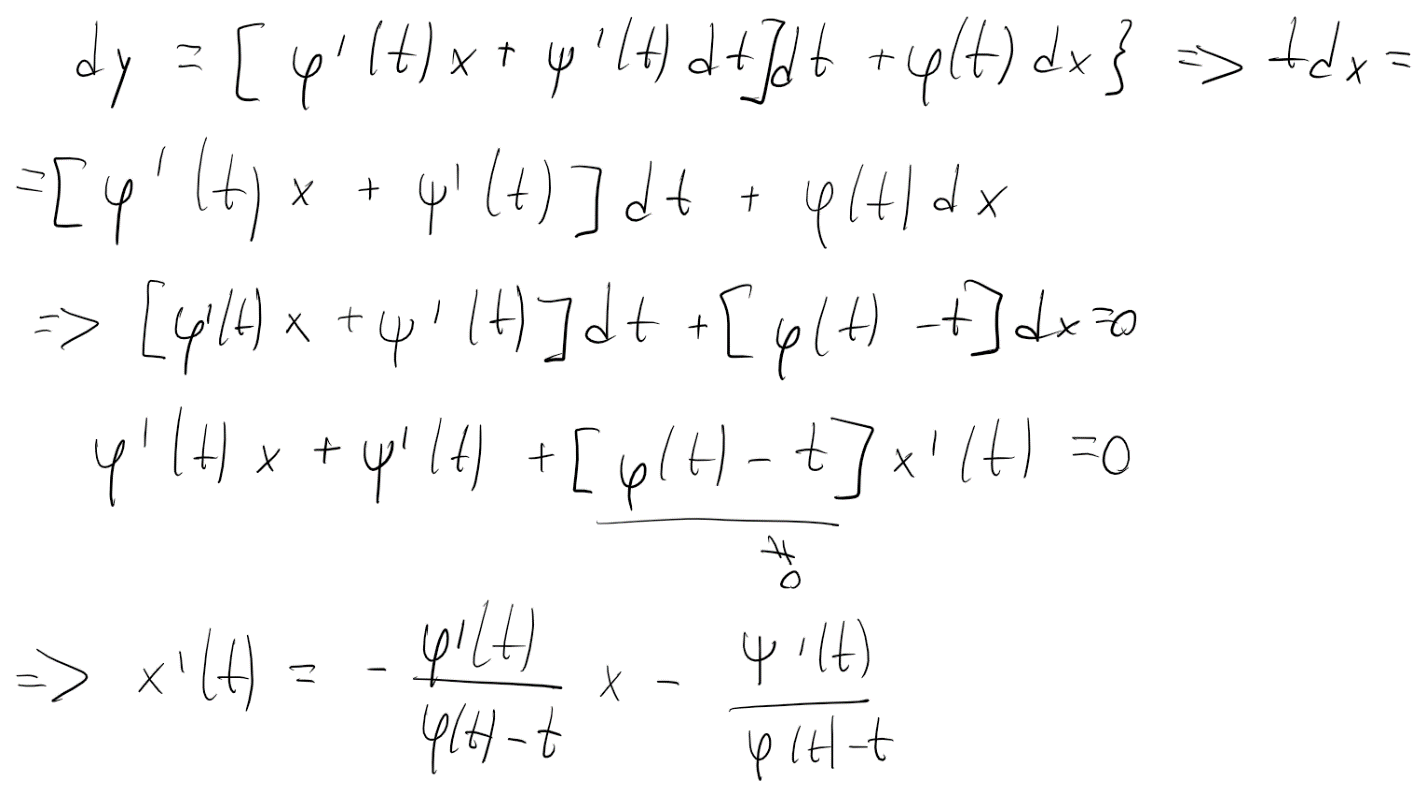 dy = [φ'(t)x + ψ'(t)dt]dt + φ(t)dx} => tdx =
= [φ'(t)x + ψ'(t)]dt + φ(t)dx
=> [φ'(t)x + ψ'(t)]dt + [φ(t) - t]dx = 0
φ'(t)x + ψ'(t) + [φ(t) - t]x'(t) = 0
≠ 0
=> x'(t) = - φ'(t)/(φ(t) - t) x - ψ'(t)/(φ(t) - t)